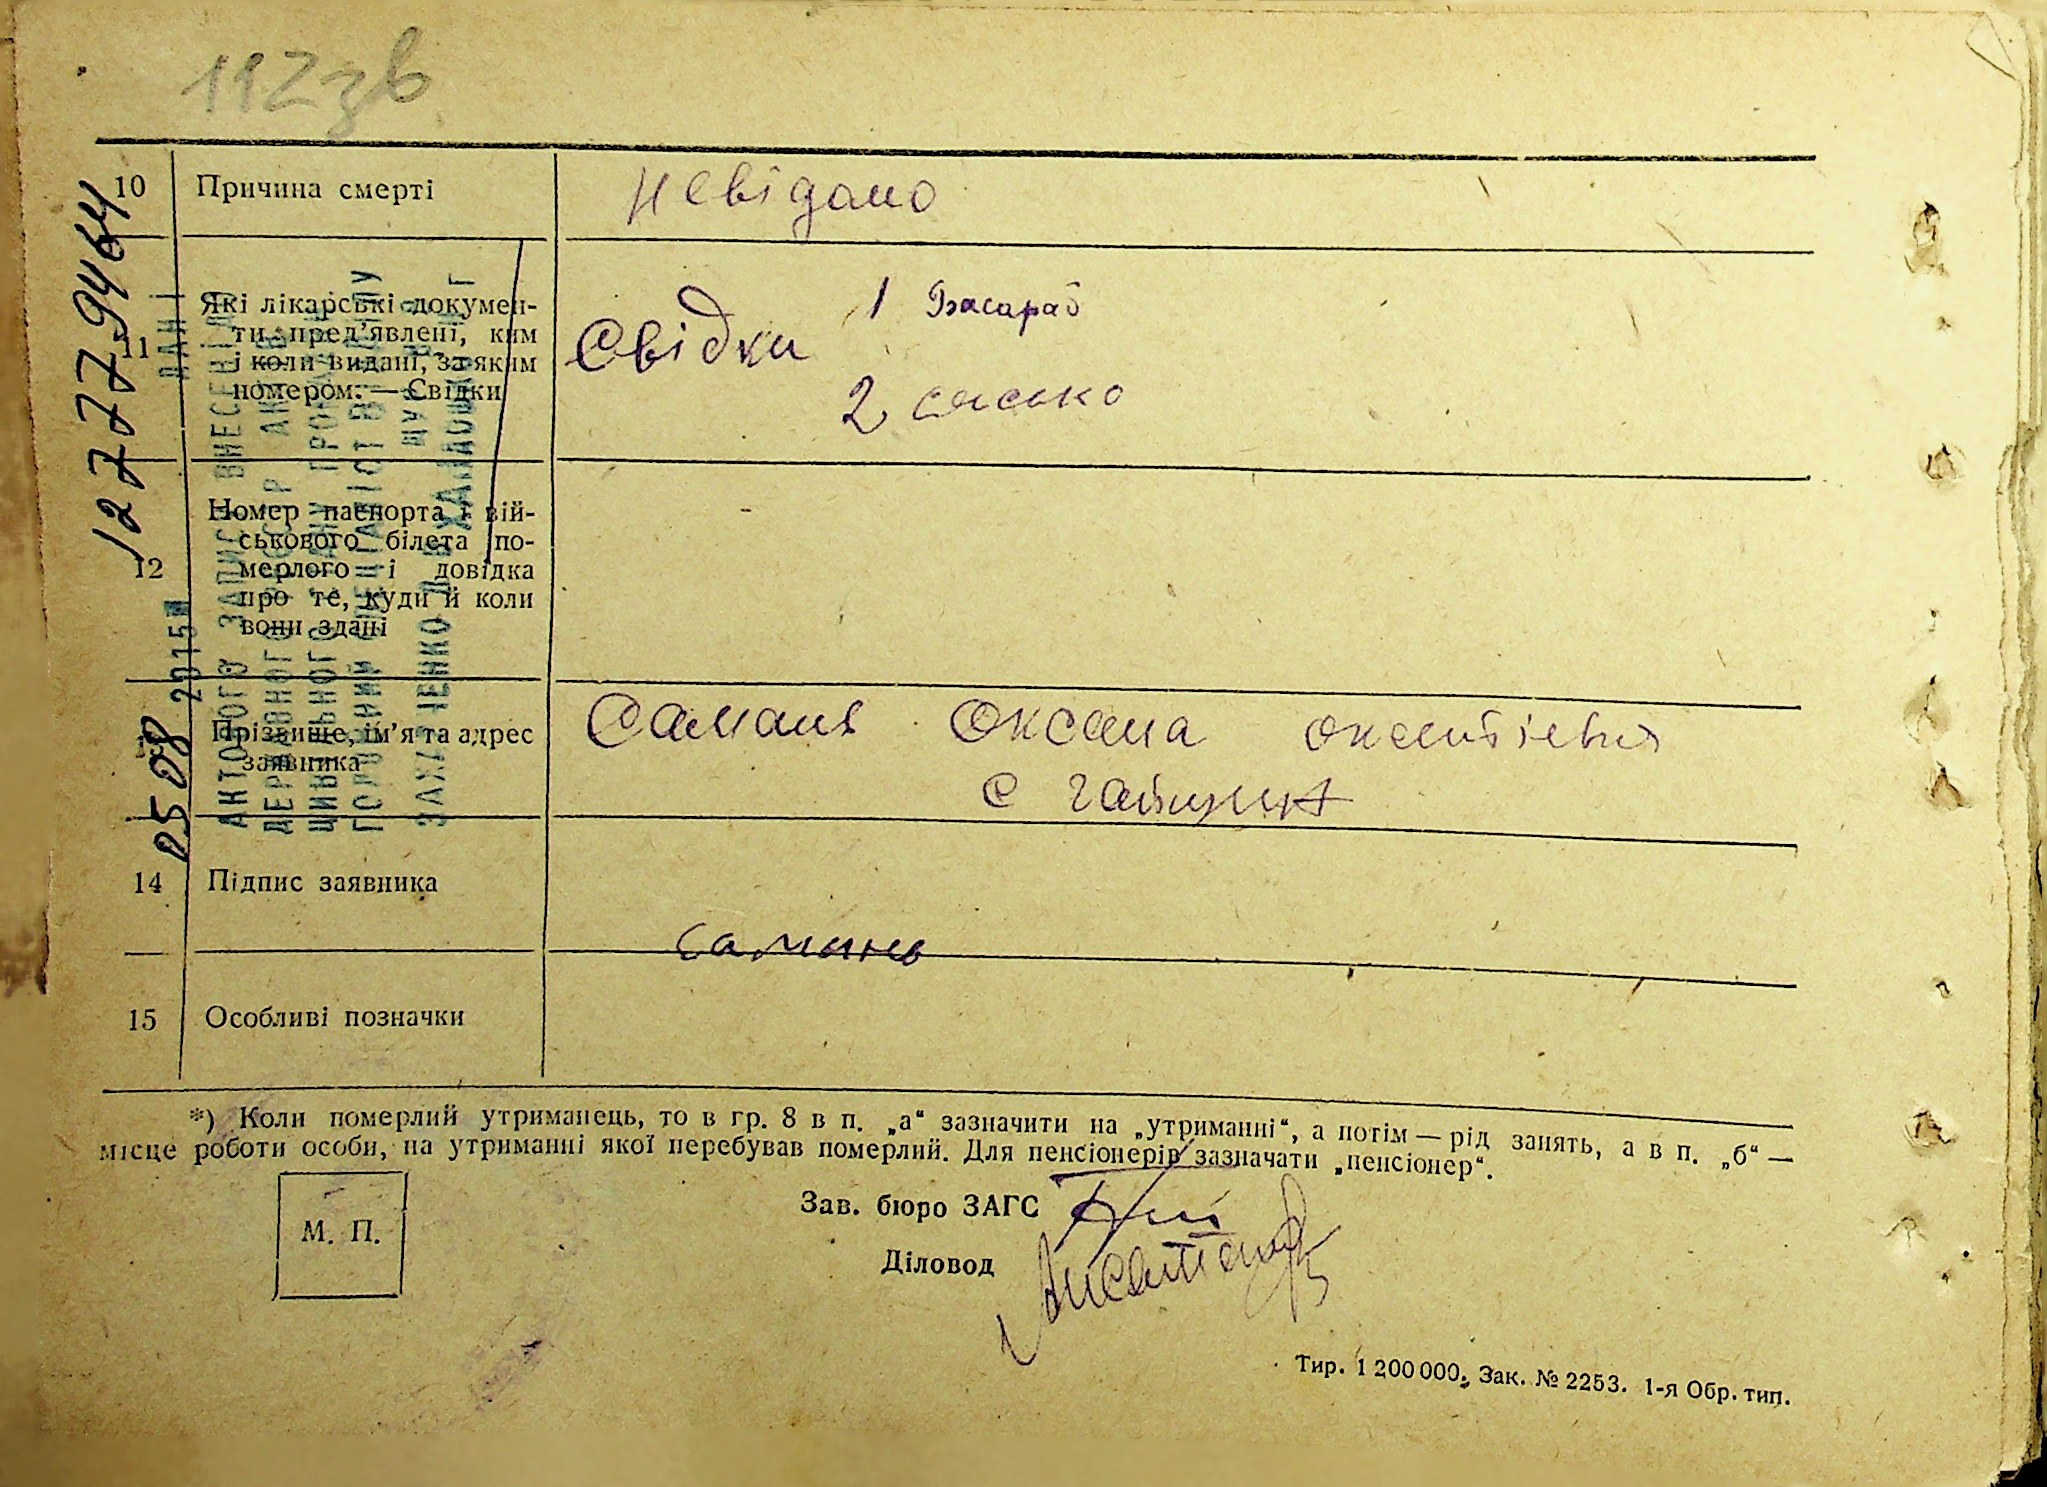 112 зв
10 Причина смерті
Невідано
11 Які лікарські докумен-
ти пред'явлені, ким
і коли видані, за яким
номером. — Свідки
Свідки 1 Басараб
2 сясько
12 Номер паспорта і вій-
ськового білета по-
мерлого і довідка
про те, куди й коли
вони здані
Прізвище, ім'я та адрес
заявника
Самань Оксана
с гайщин
14 Підпис заявника
самань
15 Особливі позначки
*) Коли померлий утриманець, то в гр. 8 в п. „а“ зазначити на „утриманні“, а потім — рід занять, а в п. „б“ —
місце роботи особи, на утриманні якої перебував померлий. Для пенсіонерів зазначати „пенсіонер“.
М. П.
Зав. бюро ЗАГС
Діловод
Тир. 1 200 000. Зак. № 2253. 1-я Обр. тип.
127779464
05 08 2015
ДАНІ
АКТОВОГО ЗАПИСУ ВНЕСЕНІ ДО
ДЕРЖАВНОГО РЕЄСТР АКТІВ
ЦИВІЛЬНОГО СТАНУ ГРОМАДЯН
ГОЛОВНИЙ СПЕЦІАЛІСТ ВІДДІЛУ